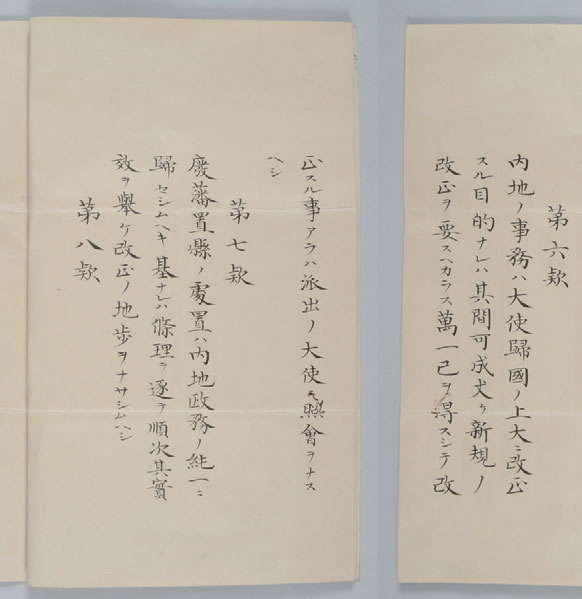 第六款
内地ノ事務ハ大使歸國ノ上大ニ改正
スル目的ナレハ其間可成丈ケ新規ノ
改正ヲ要スヘカラス萬一已ヲ得スシテ改
正スル事アラハ派出ノ大使ヘ照會ヲナス
ヘシ
第七款
廢藩置縣ノ處置ハ内地政務ノ純一ニ
歸セシムヘキ基ナレハ條理ヲ逐テ順次其實
效ヲ擧ケ改正ノ地歩ヲナサシムヘシ
第八款